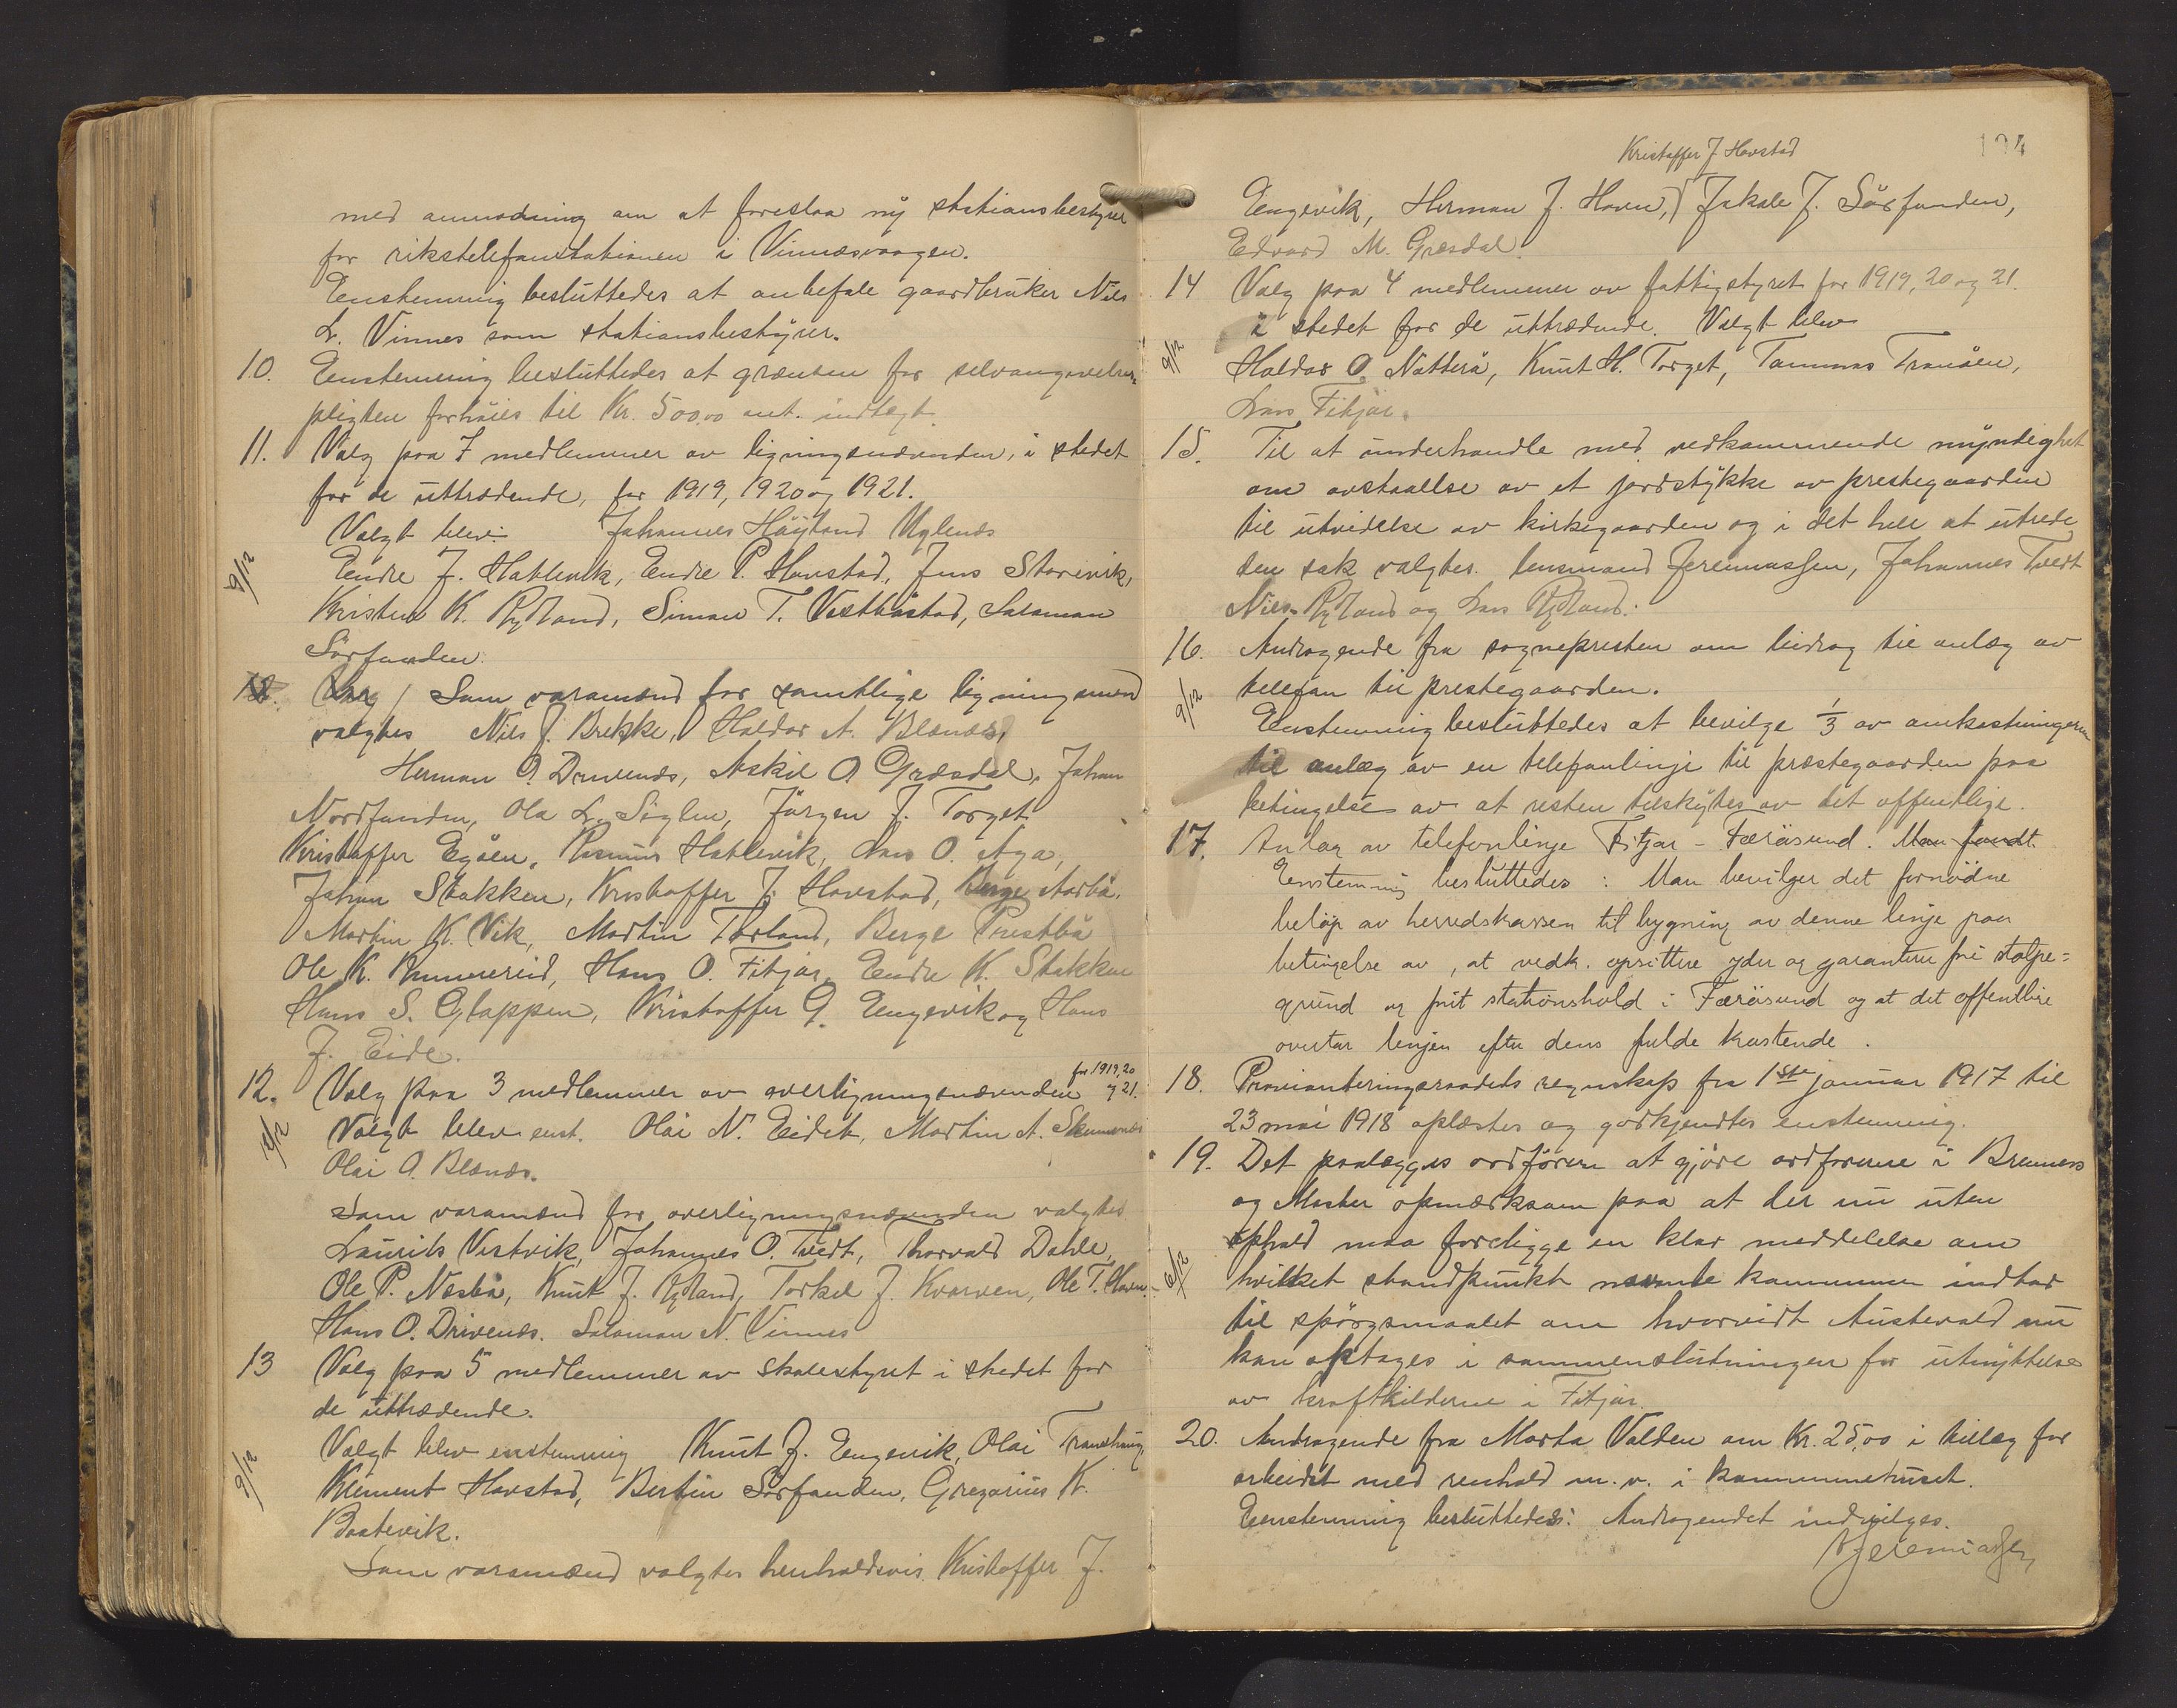 med anmodning om at foreslaa ny stationsbestyrer
for rikstelefonstationen i Vinnæsvaagen.
Eenstemmig besluttedes at anbefale gaardbruker Nils
L. Vinnes som stationsbestyrer.
10. Eenstemmig besluttedes at grænsen for selvangivelses-
pligten forhöies til Kr. 500,00 ant. indtægt.
11. Valg paa 7 medlemmer av ligningsnævnden, i stedet
for de uttrædende, for 1919, 1920 og 1921.
Valgt blev: Johannes Höyland Uglenæs
9/12 Endre J. Hatlevik, Endre P. Havstad, Jens Storevik,
Kristen K. Rydland, Simon T. Vestböstad, Salamon
Sörfonden.
12. Valg / Som varamænd for samtlige ligningsmænd
valgtes Nils J. Brekke, Haldor A. Blænæs,
Herman O. Drivenæs, Askil O. Græsdal, Johan
Nordfonden, Ola L. Siglen, Jörgen J. Torget
Kristoffer Egöen, Rasmus Hatlevik, Lars O. Aga,
Johan Stakken, Kristoffer J. Havstad, Berge Aarbö,
Martin K. Vik, Martin Torland, Berge Prestbö
Ole K. Rimmereid, Hans O. Fitjar, Endre K. Stakken
Hans S. Glappen, Kristoffer G. Engevik og Hans
J. Eide.
for 1919, 20
12. Valg paa 3 medlemmer av overligningsnævnden og 21.
12/12 Valgt blev enst. Olai N. Eidet, Martin A. Skumsnæs
Olai A. Blænæs.
Som varamænd for overligningsnævnden valgtes
Laurits Vestvik, Johannes O. Tvedt, Thorvald Dahle,
Ole P. Næsbö, Knut J. Rydland, Torkel J. Kvarven, Ole T. Haven.
Hans O. Drivenæs. Salamon N. Vinnes
13 Valg paa 5 medlemmer av skolestyret i stedet for
de uttrædende.
9/12 Valgt blev enstemmig Knut J. Engevik, Olai Transhaug
Klement Havstad, Bertin Sörfonden, Gregorius K.
Baatevik.
Som varamænd valgtes henholdsvis Kristoffer J.
194
Kristoffer J Havstad
Engevik, Herman J. Haven, Jakob J. Sörfonden,
Edvard M. Græsdal.
14 Valg paa 4 medlemmer av fattigstyret for 1919, 20 og 21.
i stedet for de uttrædende. Valgt blev
9/12 Haldor O. Nätterö, Knut H. Torget, Tammas Tranöen,
Lars Fitjar.
15. Til at underhandle med vedkommende myndighet
om avstaaelse av et jordstykke av prestegaarden
til utvidelse av kirkegaarden og i det hele at utrede
den sak valgtes. lensmand Jeremiassen, Johannes Tvedt
Nils Rydland og Lars Rydland.
16. Andragende fra sognepresten om bidrag til anlæg av
9/12 telefon til prestegaarden.
Eenstemmig besluttedes at bevilge 1/3 av omkostningerne
til anlæg av en telefonlinje til præstegaarden paa
betingelse av at resten tilskytes av det offentlige.
17. Anlæg av telefonlinje Fitjar - Færöisund. Man fandt.
Eenstemmig besluttedes: Man bevilger det fornödne
belöp av herredskassen til bygning av denne linje paa
betingelse av, at vedk. opsittere yder og garanterer fri stolpe=
grund og frit stationshold i Færöisund og at det offentlige
overtar linjen efter dens fulde kostende.
18. Provianteringsraadets regnskap fra 1ste januar 1917 til
23 mai 1918 oplæstes og godkjendtes enstemmig.
19. Det paalægges ordföreren at gjöre ordförerne i Bremnes
og Moster opmærksom paa at der nu uten
ophold maa foreligge en klar meddelelse om
6/12 hvilket standpunkt nævnte kommuner indtar
til spörgsmaalet om hvorvidt Austevold nu
kan optages i sammenslutningen for utnyttelse
av kraftkilderne i Fitjar.
20. Andragende fra Marta Valden om Kr. 25,00 i tillæg for
arbeidet med renhold m. v. i kommunehuset.
Eenstemmig besluttedes: Andragendet indvilges.
Jeremiassen